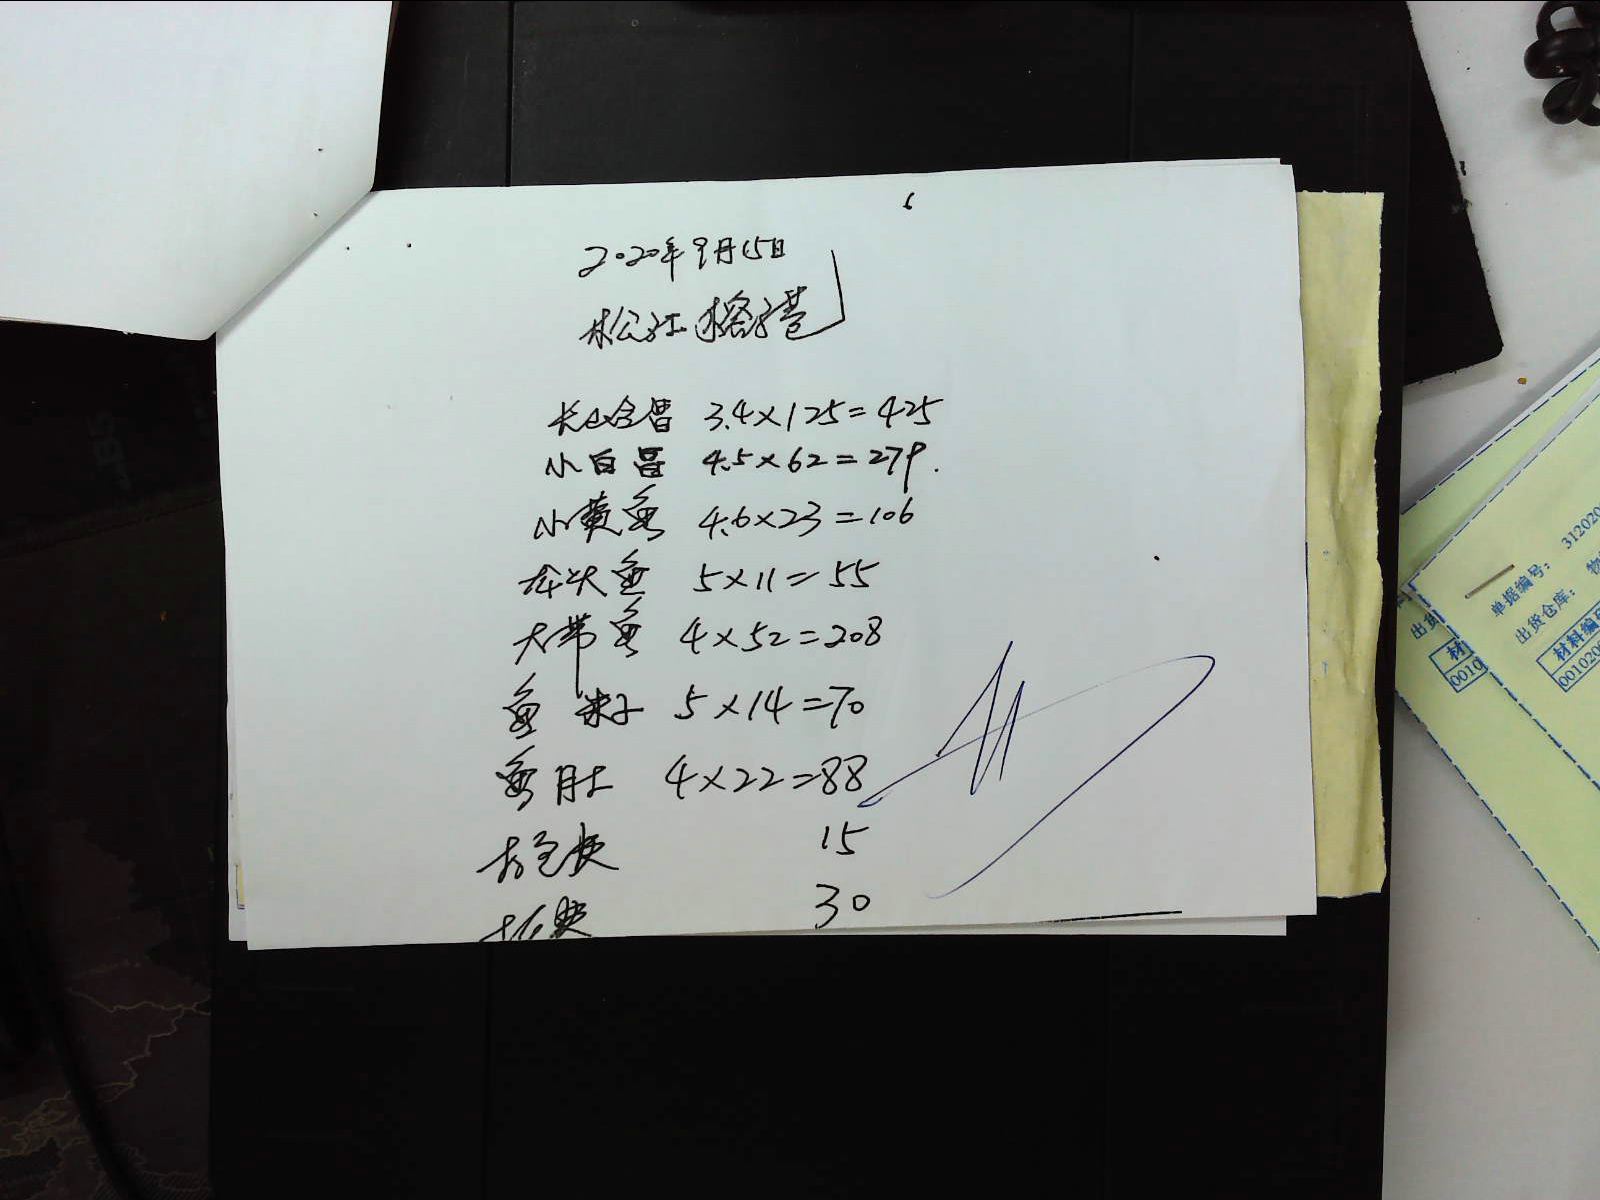 2020年9月15日
松江 榕港
长仓昌 3.4×125=425
小白昌 4.5×62=279.
小黄鱼 4.6×23=106
龙头鱼 5×11=55
大带鱼 4×52=208
鱼籽 5×14=70
鱼肚 4×22=88
打包费 15
30
单据编号: 312020
出货仓库: 物
材料编码
001020
出货
材
0010